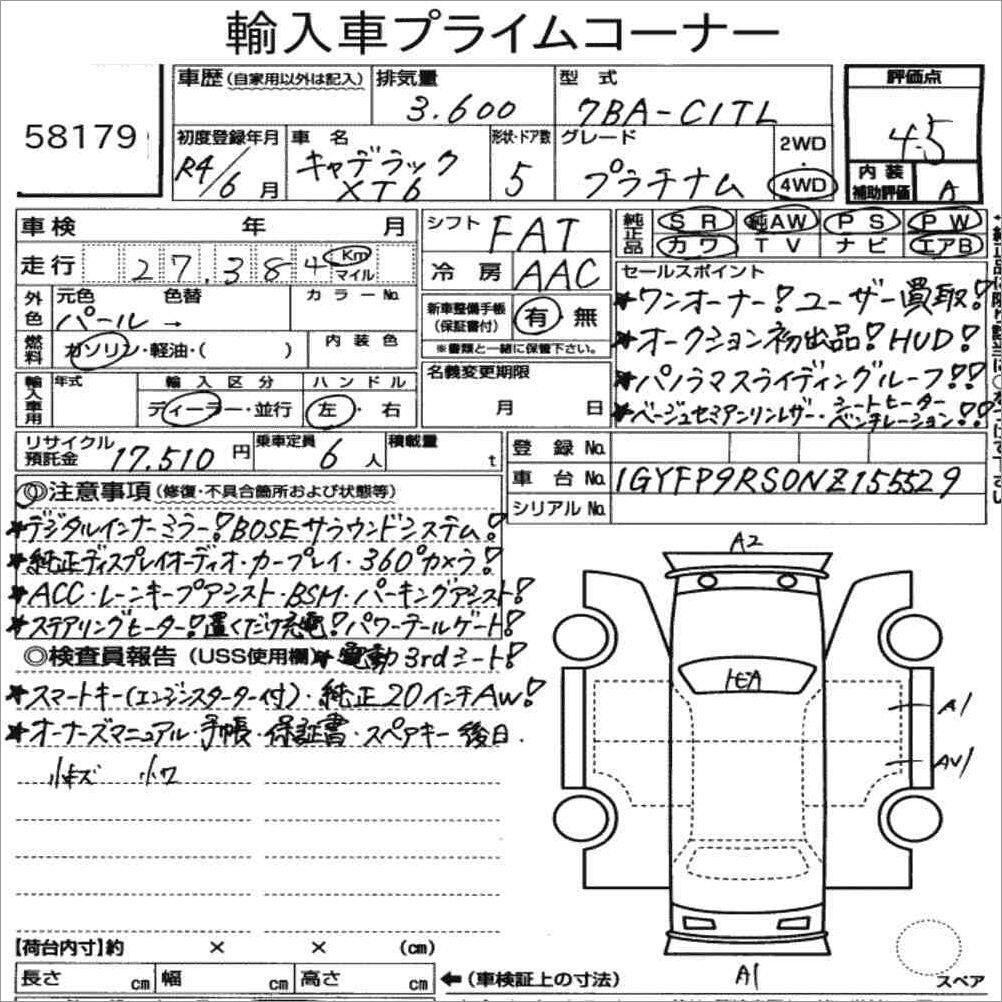 輸入車プライムコーナー
58179
車歴(自家用以外は記入) 排気量 3.600 型式 7BA-C1TL 評価点 4.5
初度登録年月 R4/6月 車名 キャデラック XT6 形状・ドア数 5 グレード プラチナム 2WD・4WD 内装補助評価 A
車検 年 月 シフト FAT 純正品 SR 純AW PS PW
走行 27.384 Km マイル 冷房 AAC カワ TV ナビ エアB
外色 元色 パール→ 色替 カラーNo. 新車整備手帳(保証書付) 有・無
燃料 ガソリン・軽油・( ) 内装色 ※書類と一緒に保管下さい。
輸入車用 年式 輸入区分 ディーラー・並行 ハンドル 左・右 名義変更期限 月 日
セールスポイント
★ワンオーナー!ユーザー買取!
★オークション初出品!HUD!
★パノラマスライディングルーフ!!
★ベージュセミアニリンレザー・シートヒーター ベンチレーション!!
リサイクル預託金 17.510円 乗車定員 6人 積載量 t
登録No.
車台No. 1GYFP9RS0NZ155529
シリアルNo.
◎注意事項(修復・不具合箇所および状態等)
★デジタルインナーミラー!BOSEサラウンドシステム!
★純正ディスプレイオーディオ・カープレイ・360°カメラ!
★ACC・レーンキープアシスト・BSM・パーキングアシスト!
★ステアリングヒーター!置くだけ充電!パワーテールゲート!
◎検査員報告(USS使用欄) ★電動3rdシート!
★スマートキー(エンジンスターター付)・純正20インチAW!
★オーナーズマニュアル・手帳・保証書・スペアキー後日.
小キズ 小ワ
A2
A1
AU1
A1
スペア
【荷台内寸】約 × × (cm)
長さ cm 幅 cm 高さ cm ←(車検証上の寸法)